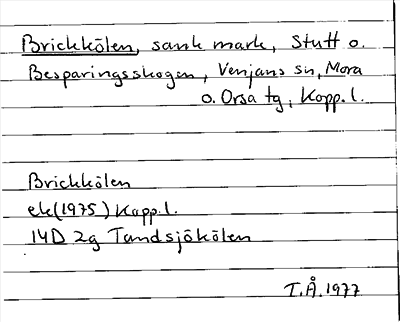 Brickkölen, sank mark, Stutt o.
Besparingsskogen, Venjans sn, Mora
o. Orsa tg, Kopp. l.
Brickkölen
ek (1975) Kopp. l.
14D 2g Tandsjökölen
T.Å. 1977